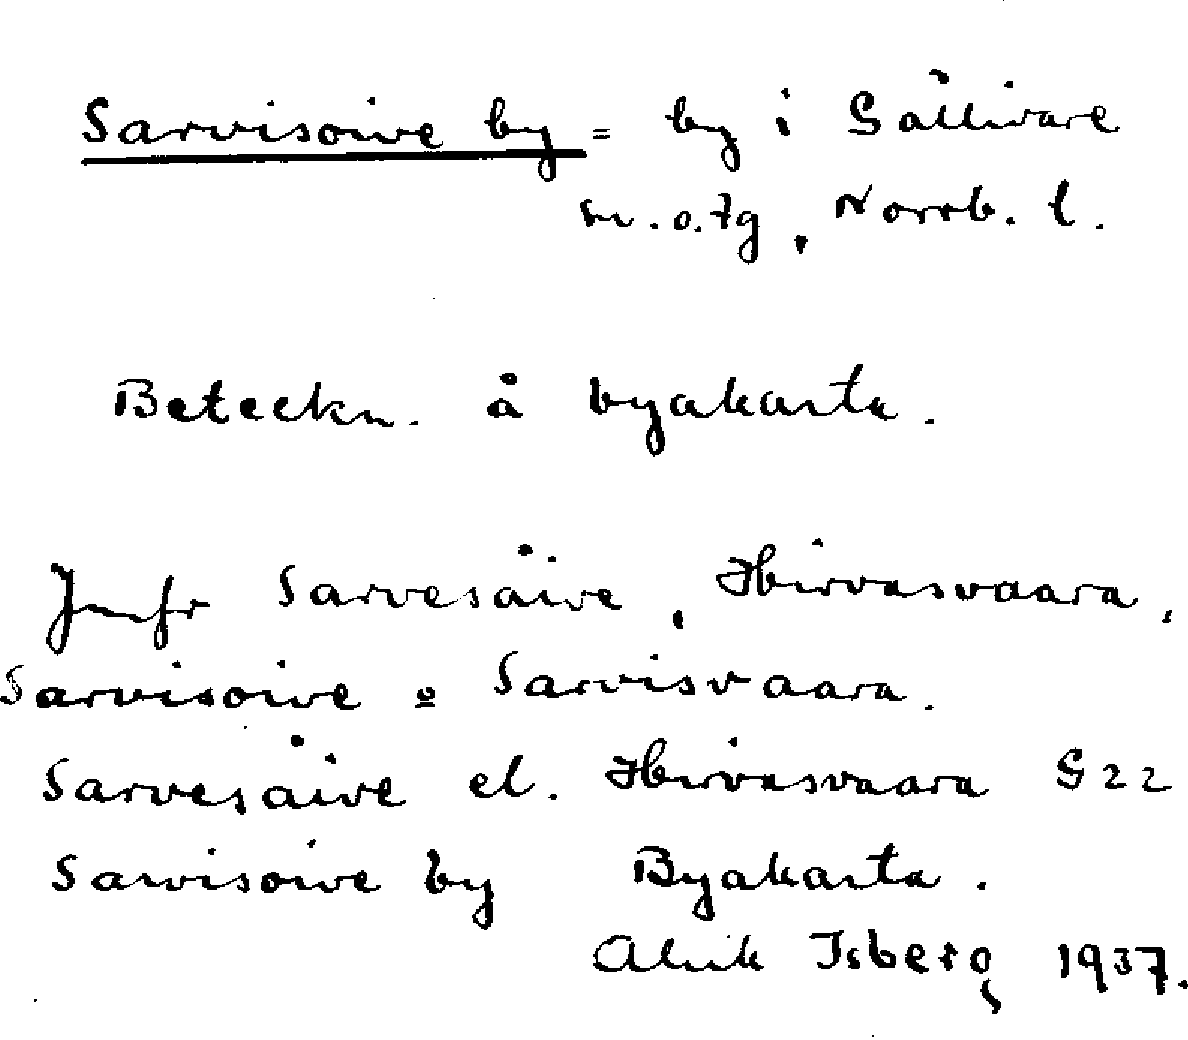 Sarvisoive by = by i Gällivare
sn. o. tg, Norrb. l.
Beteckn. å byakarta.
Jmfr Sarvesåive, Hirvasvaara,
Sarvisoive o Sarvisvaara.
Sarvesåive el. Hirvasvaara G 22
Sarvisoive by Byakarta.
Alrik Isberg 1937.